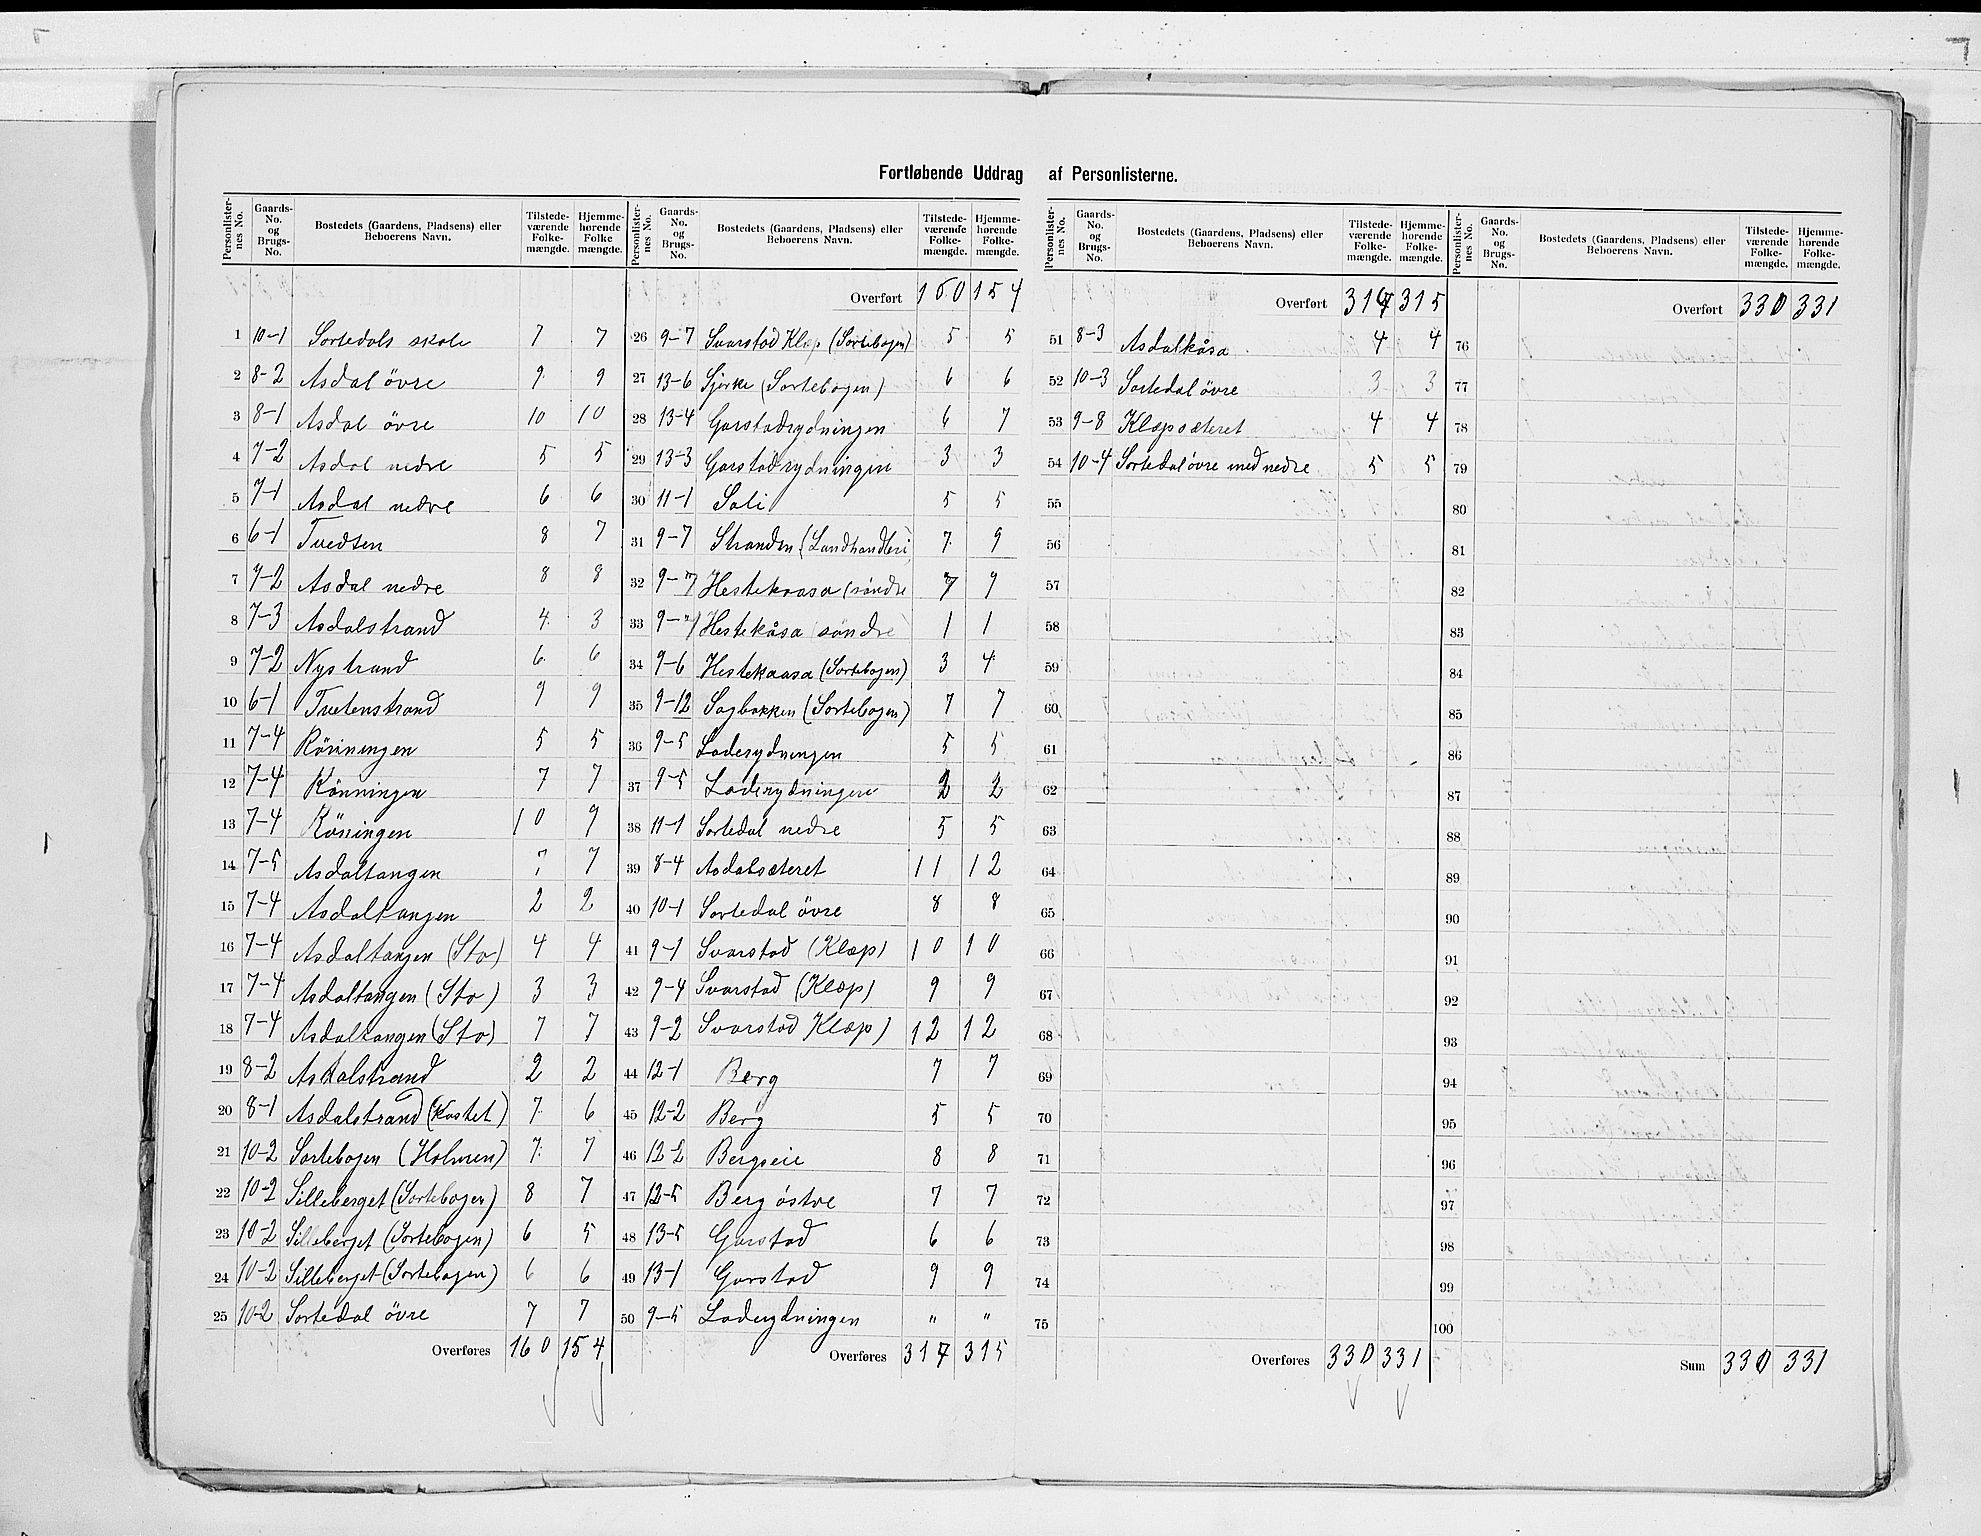 Fortløbende Uddrag af Personlisterne.
Personlister-nes No. Gaards-No. og Brugs-No. Bostedets (Gaardens, Pladsens) eller Beboerens Navn. Tilstede-værende Folke-mængde. Hjemme-hørende Folke mængde.
1 10-1 Sortedals skole 7 7
2 8-2 Asdal övre 9 9
3 8-1 Asdal övre 10 10
4 7-2 Asdal nedre 5 5
5 7-1 Asdal nedre 6 6
6 6-1 Tvedten 8 7
7 7-2 Asdal nedre 8 8
8 7-3 Asdalstrand 4 3
9 7-2 Nystrand 6 6
10 6-1 Tvetenstrand 9 9
11 7-4 Rönningen 5 5
12 7-4 Rönningen 7 7
13 7-4 Röningen 10 9
14 7-5 Asdaltangen 7 7
15 7-4 Asdaltangen 2 2
16 7-4 Asdaltangen (Sto) 4 4
17 7-4 Asdaltangen (Sto) 3 3
18 7-4 Asdaltangen (Sto) 7 7
19 8-2 Asdalstrand 2 2
20 8-1 Asdalstrand (Kastet) 7 6
21 10-2 Sortebogen (Holmen) 7 7
22 10-2 Silleberget (Sortebogen) 8 7
23 10-2 Silleberget (Sortebogen) 6 5
24 10-2 Silleberget (Sortebogen) 6 6
25 10-2 Sortedal övre 7 7
Overføres 160 154
Personlister-nes No. Gaards-No. og Brugs-No. Bostedets (Gaardens, Pladsens) eller Beboerens Navn. Tilstede-værende Folke-mængde. Hjemme-hørende Folke-mængde.
Overført 160 154
26 9-7 Svarstad Klep (Sortebogen) 5 5
27 13-6 Sjerke (Sortebogen) 6 6
28 13-4 Garstadrydningen 6 7
29 13-3 Garstadrydningen 3 3
30 11-1 Sali 5 5
31 9-7 Stranden (Landhandleri 7 9
32 9-7 Hestekaasa (söndre 7 9
33 9-7 Hestekåsa söndre 1 1
34 9-6 Hestekaasa (Sortebogen) 3 4
35 9-12 Sagbakken (Sortebogen) 7 7
36 9-5 Laderydningen 5 5
37 9-5 Laderydningen 2 2
38 11-1 Sortedal nedre 5 5
39 8-4 Asdalsæteret 11 12
40 10-1 Sortedal övre 8 8
41 9-1 Svarstad (Klæp) 10 10
42 9-4 Svarstad (Klæp) 9 9
43 9-2 Svarstad Klæp) 12 12
44 12-1 Berg 7 7
45 12-2 Berg 5 5
46 12-2 Bergseie 8 8
47 12-5 Berg östre 7 7
48 13-5 Garstad 6 6
49 13-1 Garstad 9 9
50 9-5 Laderydningen " "
Overføres 317 315
Personlister-nes No. Gaards-No. og Brugs-No. Bostedets (Gaardens, Pladsens) eller Beboerens Navn. Tilstede-værende Folke-mængde. Hjemme-hørende Folke-mængde.
Overført 314 315
51 8-3 Asdalkåsa 4 4
52 10-3 Sortedal övre 3 3
53 9-8 Klæpsæteret 4 4
54 10-4 Sortedal övre med nedre 5 5
55
56
57
58
59
60
61
62
63
64
65
66
67
68
69
70
71
72
73
74
75
Overføres 330 331
Personlister-nes No. Gaards-No. og Brugs-No. Bostedets (Gaardens, Pladsens) eller Beboerens Navn. Tilstede-værende Folke-mængde. Hjemme-hørende Folke-mængde.
Overført 330 331
76
77
78
79
80
81
82
83
84
85
86
87
88
89
90
91
92
93
94
95
96
97
98
99
100
Sum 330 331